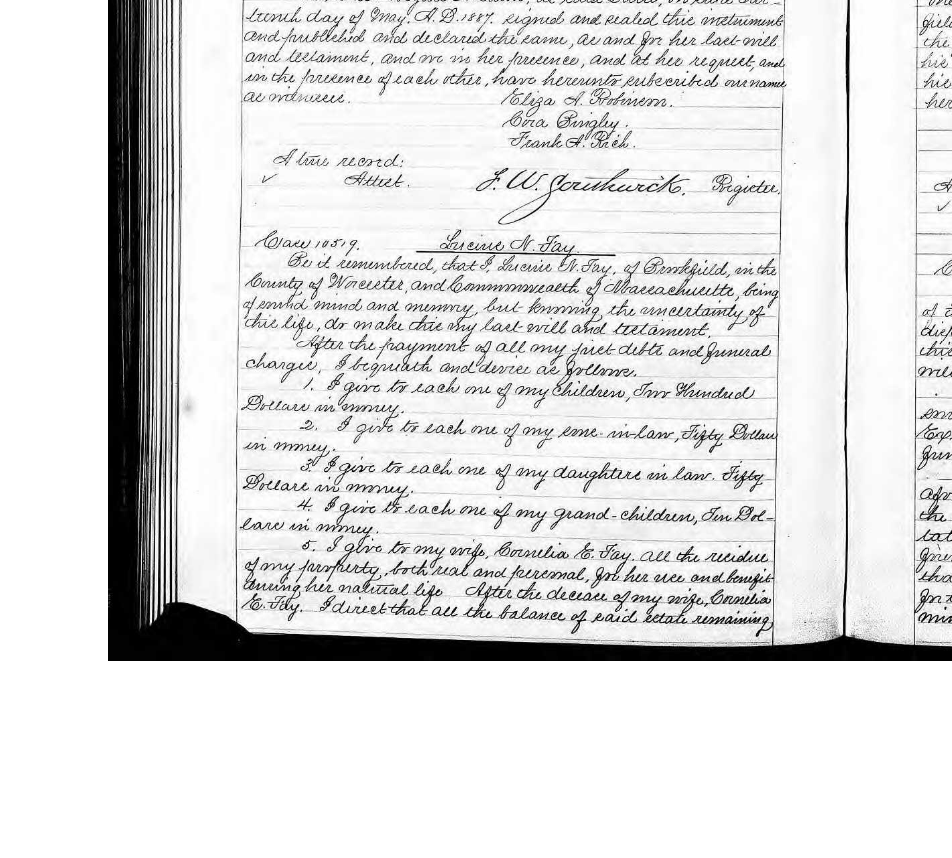 teenth day of May. A. D. 1887. signed and sealed this instrument
and published and declared the same, as and for her last will
and testament, and we in her presence, and at her request, and
in the presence of each other, have hereunto subscribed our names
as witnesses. Eliza A. Robinson.
Cora Bingley.
Frank A. Rich.
A true record:
✓ Attest. F. W. Southwick. Register.
Case 10519. Lucius N. Fay
Be it remembered, that I, Lucius N. Fay, of Brookfield, in the
County of Worcester, and Commonwealth of Massachusetts, being
of sound mind and memory, but knowing the uncertainty of
this life, do make this my last will and testament.
After the payment of all my just debts and funeral
charges, I bequeath and devise as follows.
1. I give to each one of my children, Two Hundred
Dollars in money.
2. I give to each one of my sons-in-law, Fifty Dollars
in money.
3. I give to each one of my daughters in law. Fifty
Dollars in money.
4. I give to each one of my grand-children, Ten Dol-
lars in money.
5. I give to my wife, Cornelia E. Fay. all the residue
of my property, both real and personal, for her use and benefit
during her natural life After the decease of my wife, Cornelia
E. Fay. I direct that all the balance of said estate remaining